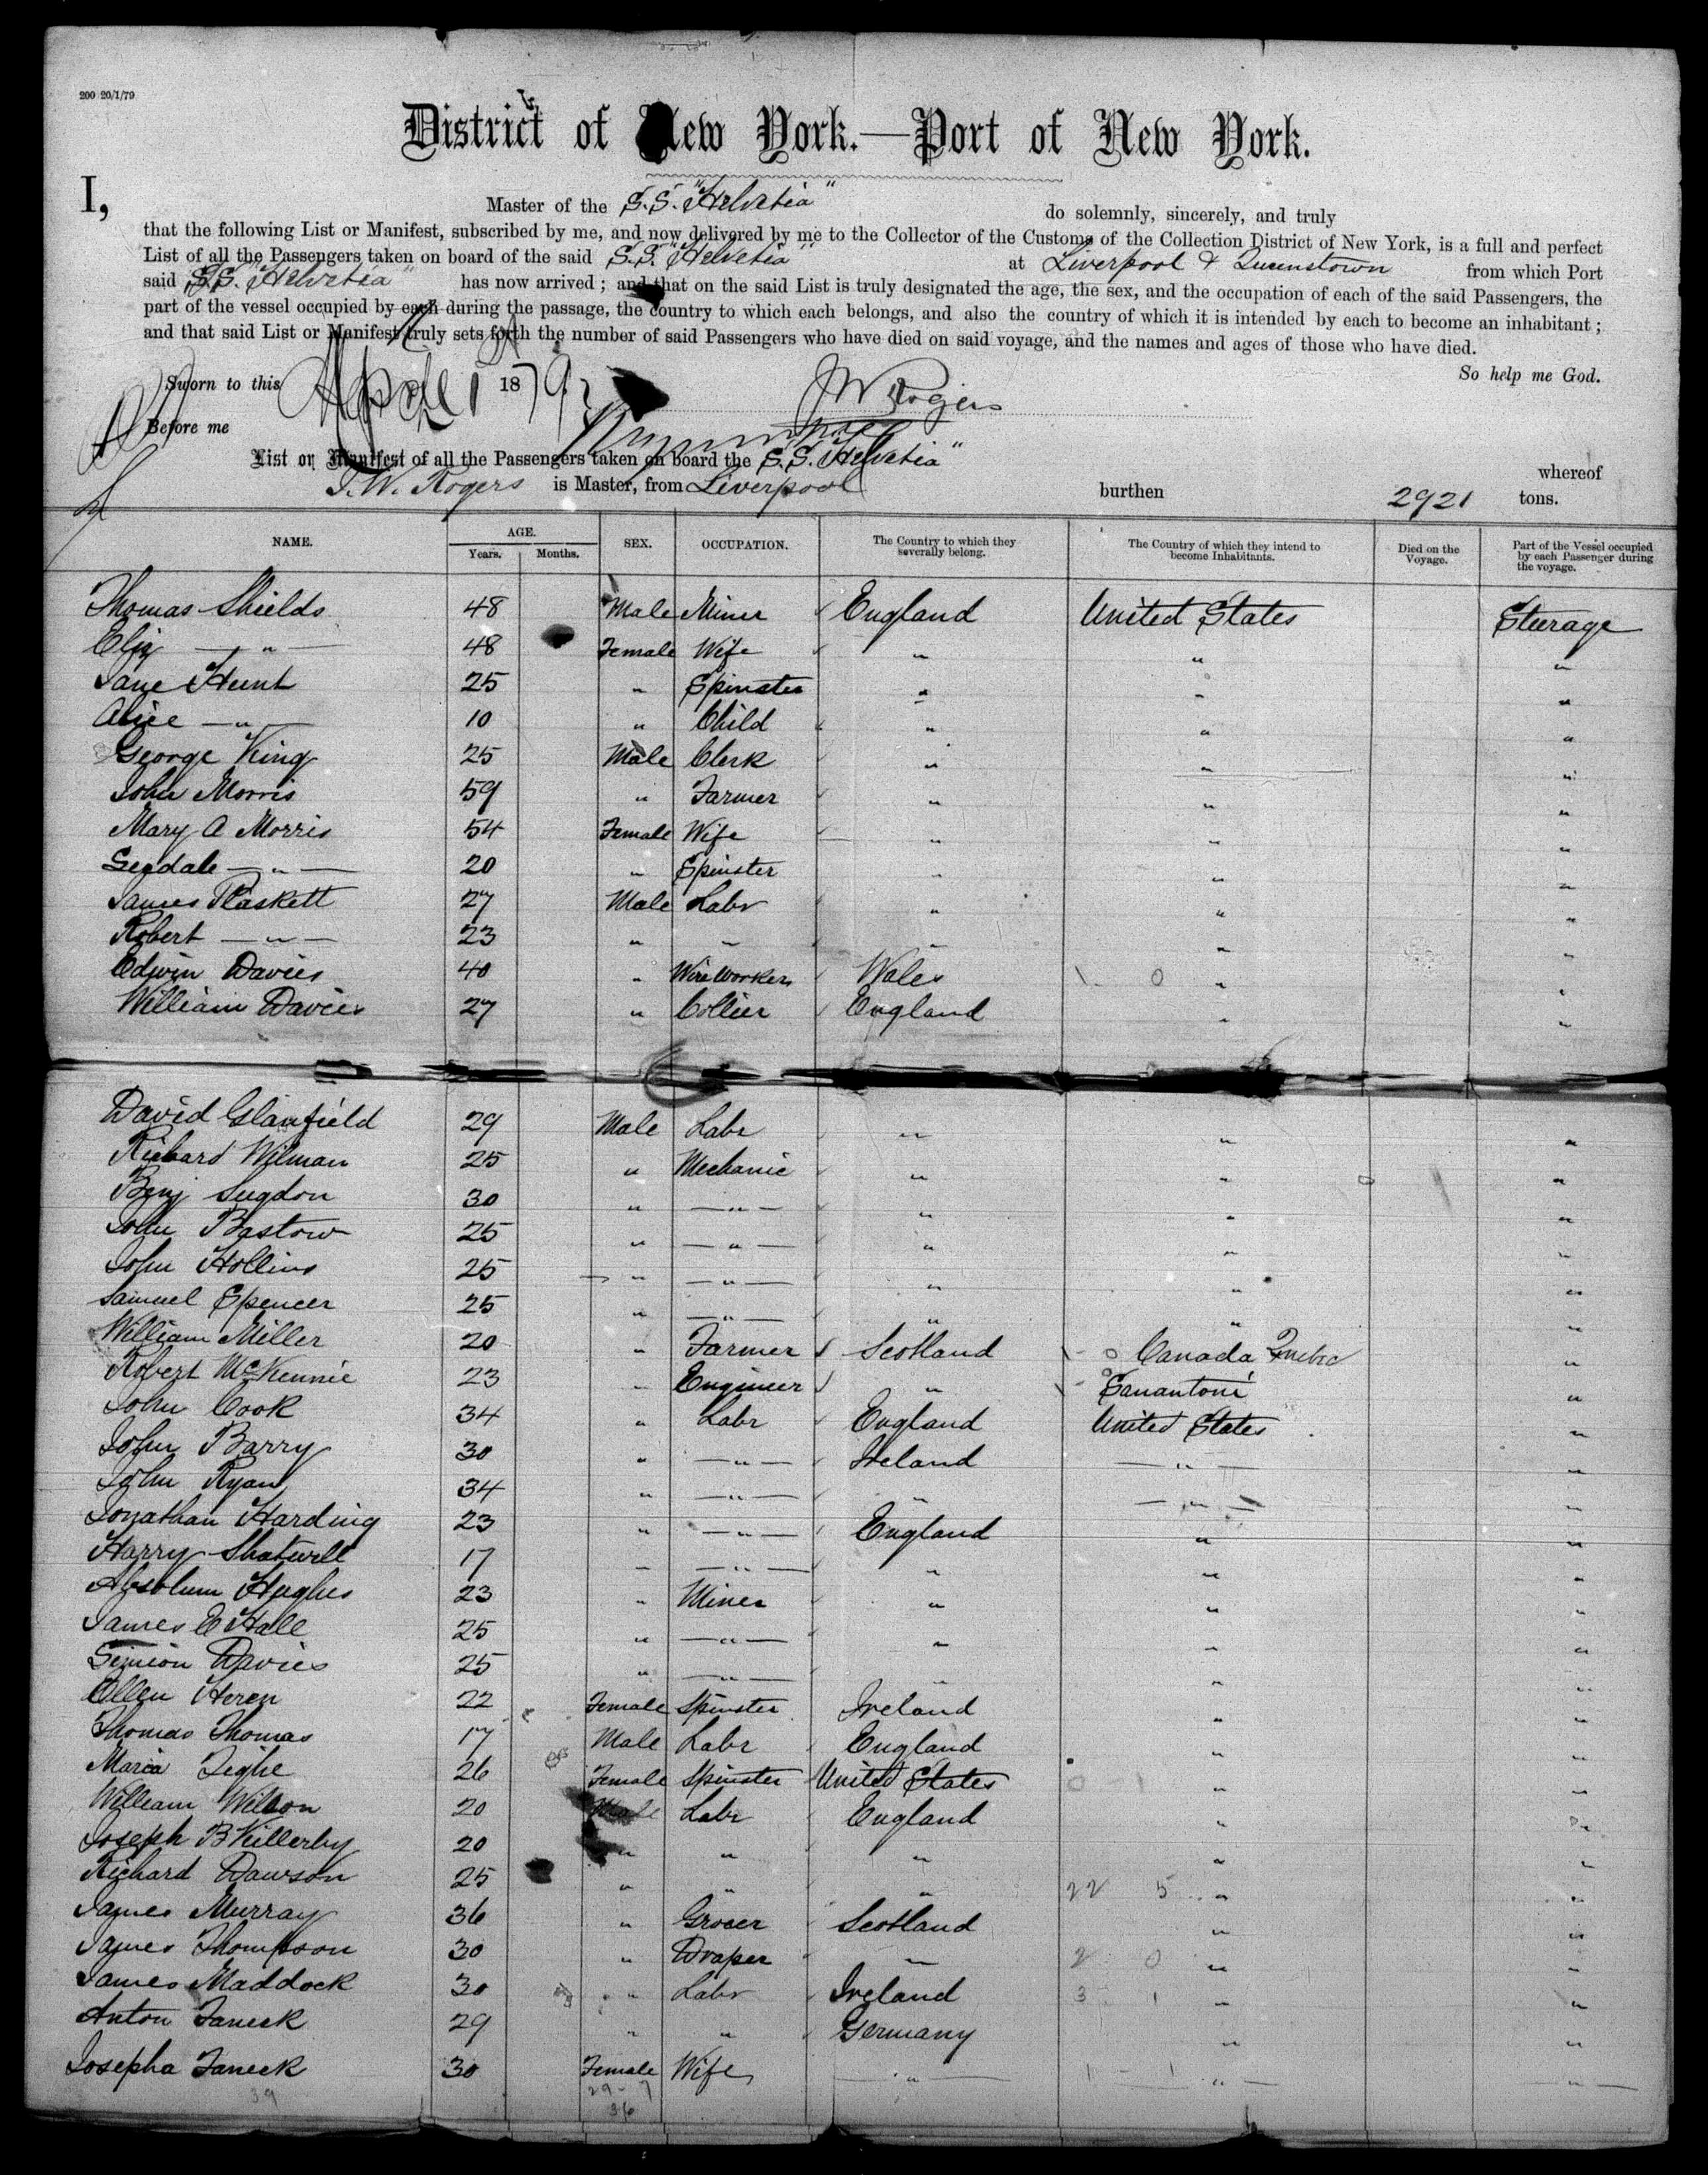 200 20/1/79
District of New York.—Port of New York.
I, Master of the S.S. "Helvetia" do solemnly, sincerely, and truly
that the following List or Manifest, subscribed by me, and now delivered by me to the Collector of the Customs of the Collection District of New York, is a full and perfect
List of all the Passengers taken on board of the said S.S. "Helvetia" at Liverpool & Queenstown from which Port
said S.S. "Helvetia" has now arrived; and that on the said List is truly designated the age, the sex, and the occupation of each of the said Passengers, the
part of the vessel occupied by each during the passage, the country to which each belongs, and also the country of which it is intended by each to become an inhabitant;
and that said List or Manifest truly sets forth the number of said Passengers who have died on said voyage, and the names and ages of those who have died.
So help me God.
Sworn to this April 1879 J W Rogers
Before me
List or Manifest of all the Passengers taken on board the S.S. "Helvetia" whereof
J. W. Rogers is Master, from Liverpool burthen 2921 tons.
NAME. AGE. Years. Months. SEX. OCCUPATION. The Country to which they severally belong. The Country of which they intend to become Inhabitants. Died on the Voyage. Part of the Vessel occupied by each Passenger during the voyage.
Thomas Shields 48 Male Miner England United States Steerage
Eliz — " — 48 Female Wife " " "
Jane Hunt 25 " Spinster " " "
Alice — " — 10 " Child " " "
George King 25 Male Clerk " " "
John Morris 59 " Farmer " " "
Mary A Morris 54 Female Wife " " "
— " — 20 " Spinster " " "
James Plaskett 27 Male Labr " " "
Robert — " — 23 " " " " "
Edwin Davies 40 " Wire Worker Wales " "
William Davies 27 " Collier England " "
David Glanfield 29 Male Labr " " "
Richard Wilman 25 " Mechanic " " "
Benj Sugdon 30 " — " — " " "
John Bastow 25 " — " — " " "
John Hollins 25 " — " — " " "
Samuel Spencer 25 " — " — " " "
William Miller 20 " Farmer Scotland Canada Quebec "
Robert McKennie 23 " Engineer " Sanantoni "
John Cook 34 " Labr England United States "
John Barry 30 " — " — Ireland — " — "
John Ryan 34 " — " — " — " — "
Jonathan Harding 23 " — " — England " "
Harry Shatwell 17 " — " — " " "
Absolum Hughes 23 " Miner " " "
James E Hall 25 " — " — " " "
Simeon Davies 25 " — " — " " "
Ellen Heren 22 Female Spinster Ireland " "
Thomas Thomas 17 Male Labr England " "
Maria Tighe 26 Female Spinster United States " "
William Wilson 20 Male Labr England " "
Joseph B Killerby 20 " " " " "
Richard Dawson 25 " " " 22 5 " "
James Murray 36 " Grocer Scotland " "
James Thompson 30 " Draper " 2 0 " "
James Maddock 30 " Labr Ireland 3 1 " "
Anton Janeck 29 " " Germany " "
Josepha Janeck 30 Female Wife — " — 1 - 1 " — " —
39 29 - 7
36